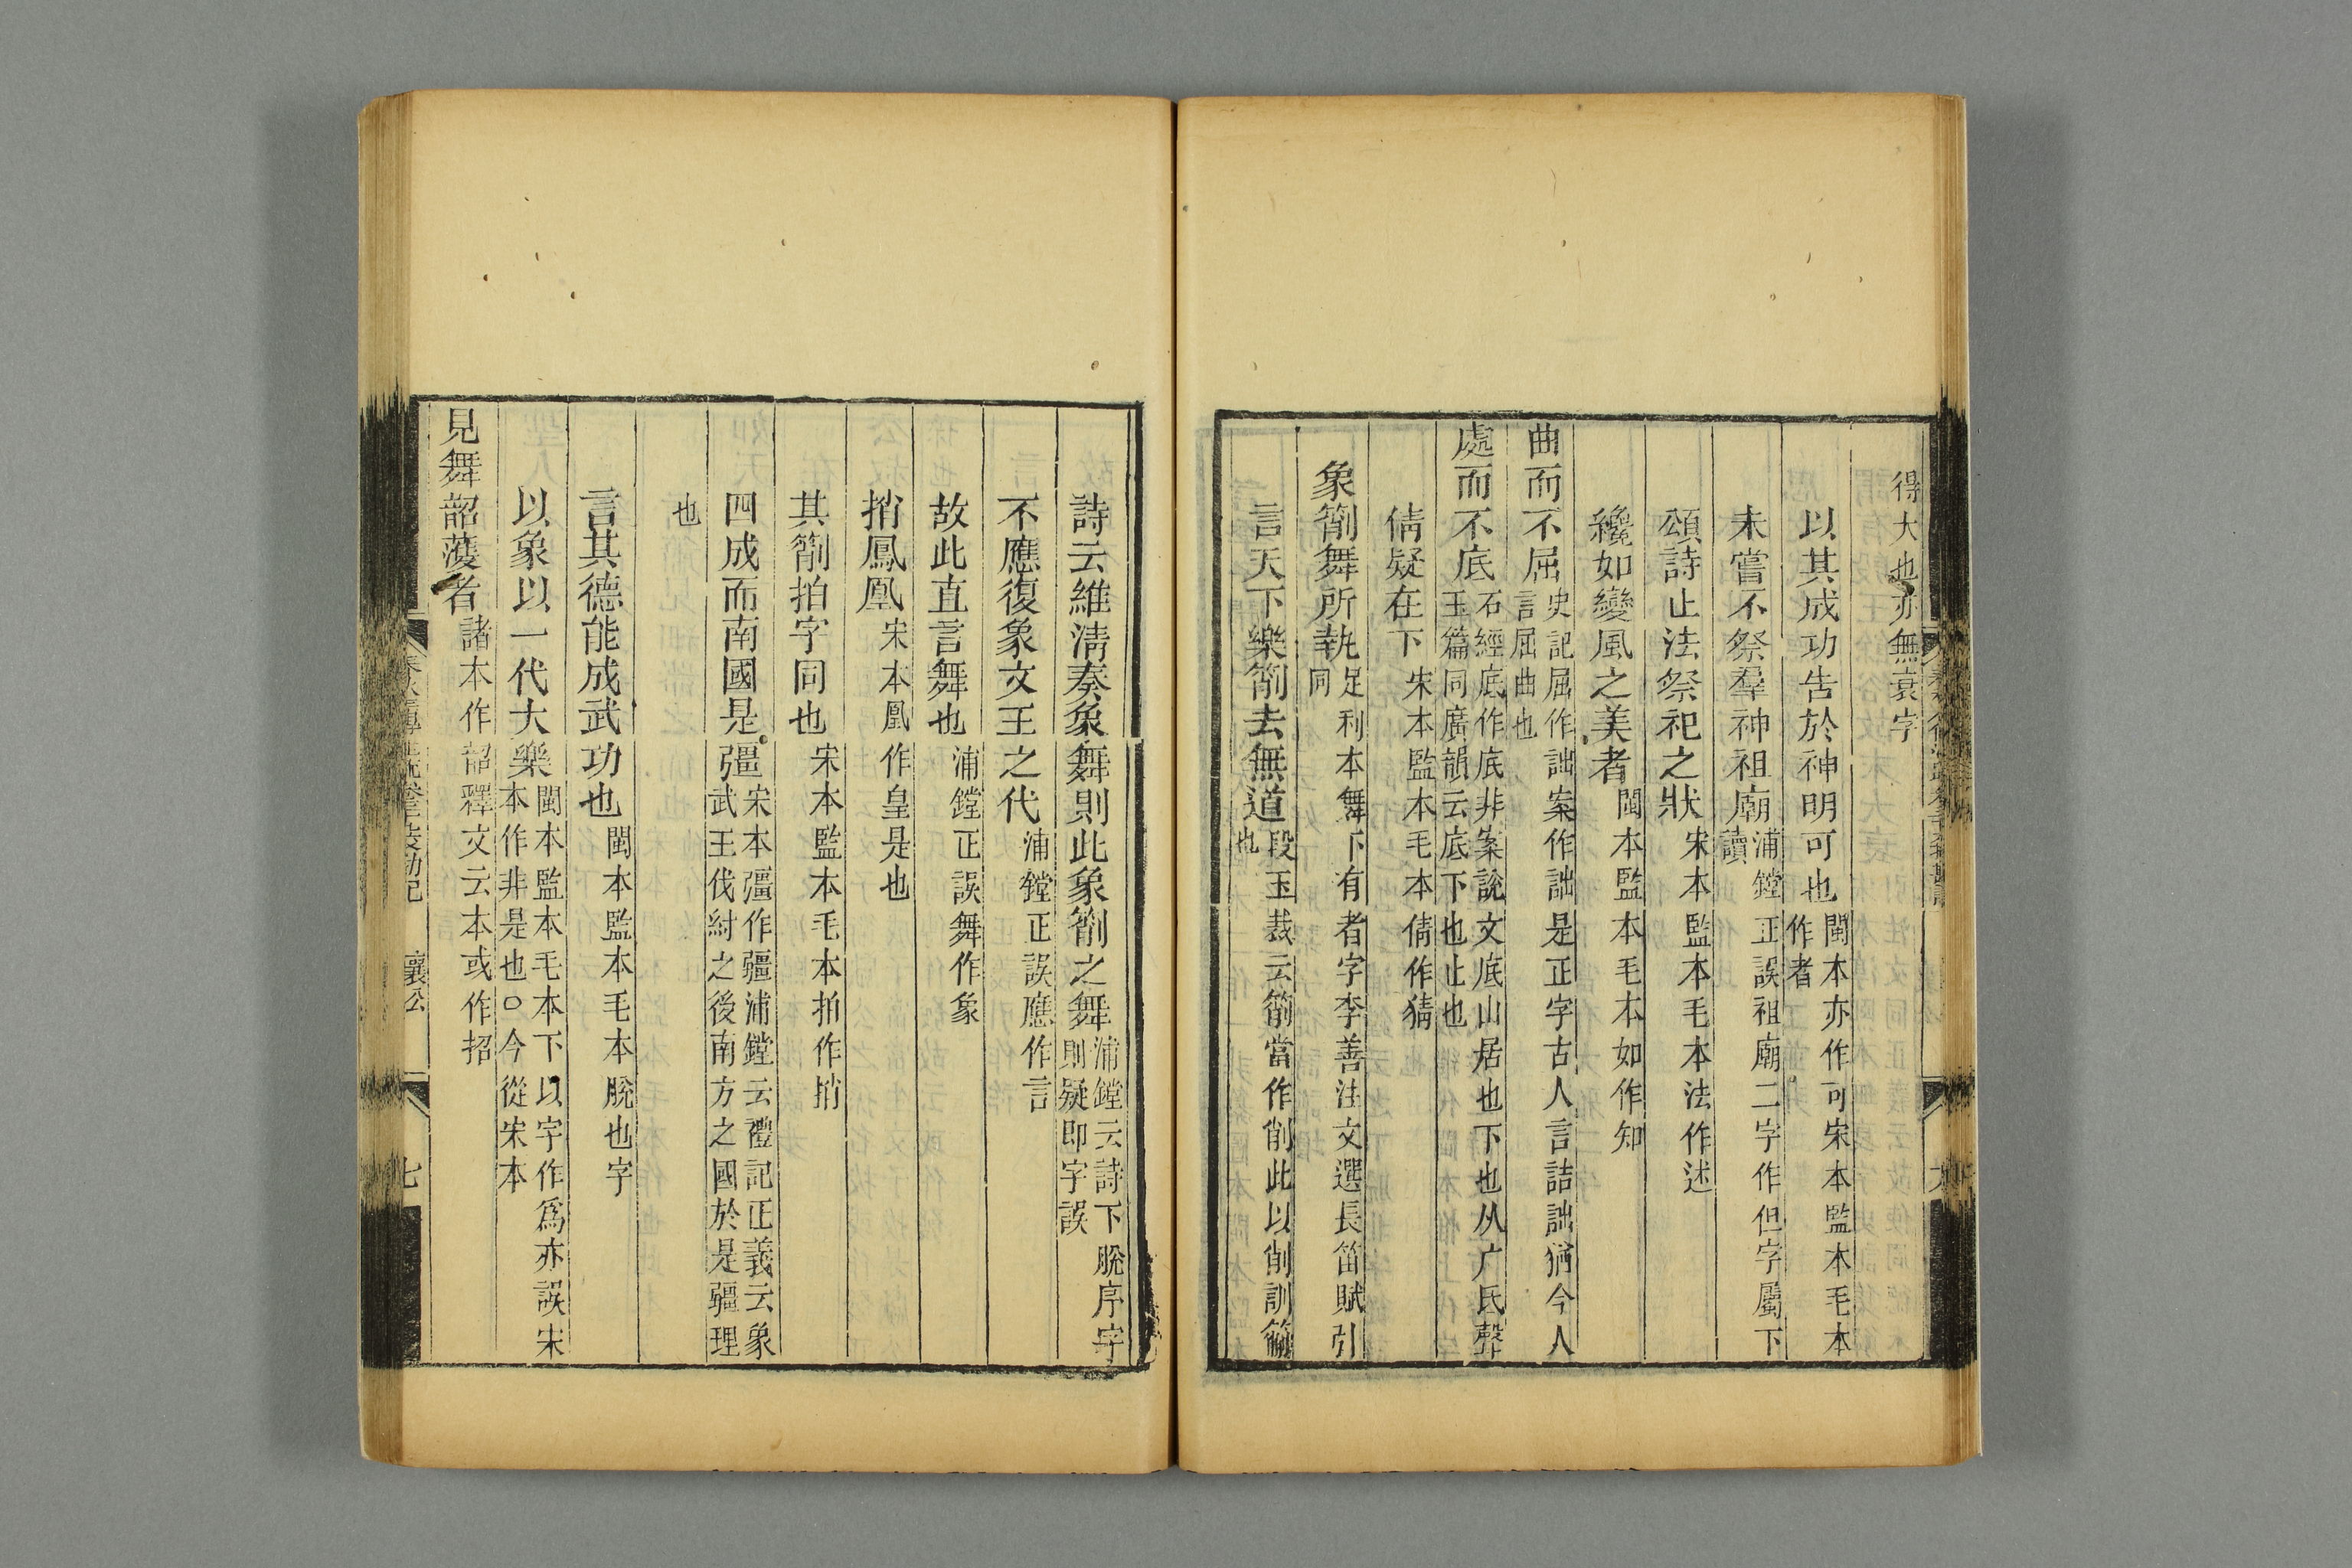 得大也亦無袁字
以其成功告於神明可也閩本亦作可宋本監本毛本作者
未嘗不祭羣神祖廟浦鏜正誤祖廟二字作但字屬下讀
頌詩止法祭祀之狀宋本監本毛本法作述
纔如變風之美者閩本監本毛本如作知
曲而不屈史記屈作詘案作詘是正字古人言詰詘猶今人言屈曲也
處而不底石經底作底非案說文底山居也下也从广氐聲玉篇同廣韻云底下也止也
倩疑在下宋本監本毛本倩作猜
象箾舞所執足利本舞下有者字李善注文選長笛賦引同
言天下樂箾去無道段玉裁云箾當作削此以削訓箾也
詩云維清奏象舞則此象箾之舞浦鏜云詩下脫序字則疑即字誤
不應復象文王之代浦鏜正誤應作言
故此直言舞也浦鏜正誤舞作象
捎鳳凰宋本凰作皇是也
其箾拍字同也宋本監本毛本拍作捎
四成而南國是彊宋本彊作疆浦鏜云禮記正義云象武王伐紂之後南方之國於是疆理
也
言其德能成武功也閩本監本毛本脫也字
以象以一代大樂閩本監本毛本下以字作爲亦誤宋本作非是也○今從宋本
見舞韶濩者諸本作韶釋文云本或作招
襄公
七